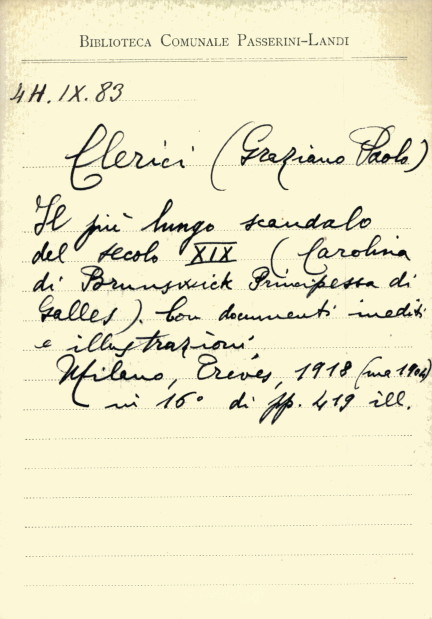 BIBLIOTECA COMUNALE PASSERINI-LANDI
4H. IX. 83
Clerici (Graziano Paolo)
Il più lungo scandalo
del secolo XIX (Carolina
di Brunswick Principessa di
Galles). Con documenti inediti
e illustrazioni.
Milano, Treves, 1918 (ma 1904)
in 16° di pp. 419 ill.